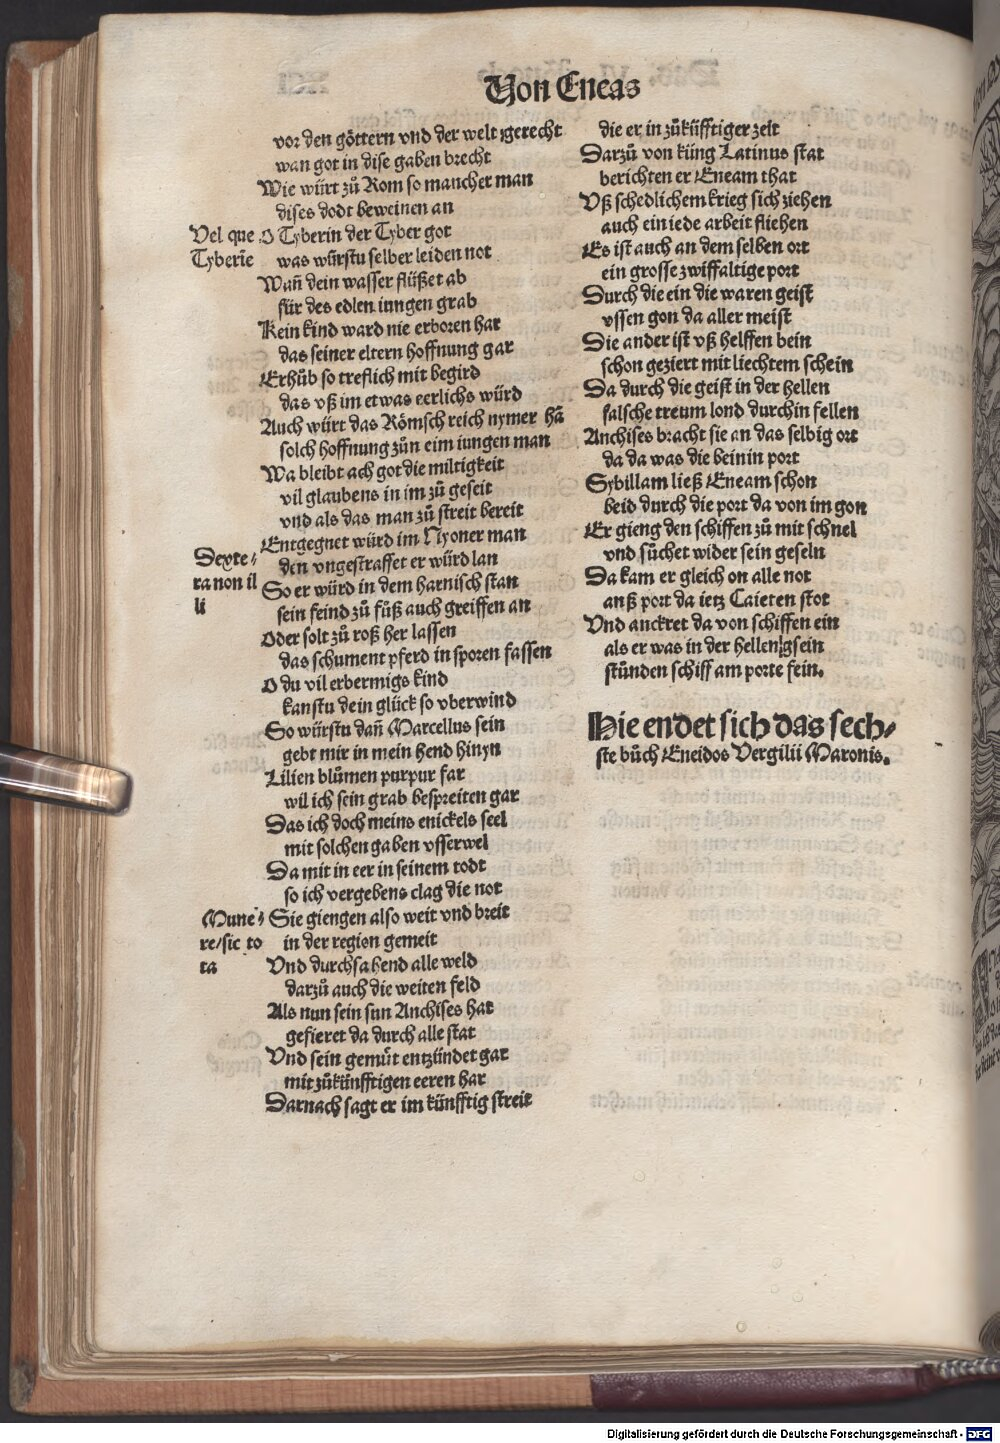 Von Eneas
vor den göttern vnd der welt gerecht
wan got in dise gaben brecht
Wie würt zů Rom so mancher man
dises dodt beweinen an
Vel que
Tyberīe
O Tyberin der Tyber got
was würstu selber leiden not
Wañ dein wasser flüßet ab
für des edlen iungen grab
Kein kind ward nie erboren har
das seiner eltern hoffnung gar
Erhůb so treflich mit begird
das vß im etwas eerlichs würd
Auch würt das Römsch reich nymer hā
solch hoffnung zůn eim iungen man
Wa bleibt ach got die miltigkeit
vil glaubens in im zů geseit
vnd als das man zů streit bereit
Entgegnet würd im
man
Dexte⸗
ra non il
li
den vngestraffet er würd lan
So er würd in dem harnisch stan
sein feind zů fůß auch greiffen an
Oder solt zů roß her lassen
das schument pferd in sporen fassen
O du vil erbermigs kind
kanstu dein glück so vberwind
So würstu dañ Marcellus sein
gebt mir in mein hend hinyn
Lilien blůmen purpur far
wil ich sein grab bespreiten gar
Das ich doch meins enickels seel
mit solchen gaben vsserwel
Da mit in eer in seinem todt
so ich vergebens clag die not
Mune⸗
re/sic to
ta
Sie giengen also weit vnd breit
in der region gemeit
Vnd durchsahend alle weld
darzů auch die weiten feld
Als nun sein sun Anchises hat
gefieret da durch alle stat
Vnd sein gemüt entzündet gar
mit zůkünfftigen eeren har
Darnach sagt er im künfftig streit
die er in zůküfftiger zeit
Darzů von küng Latinus stat
berichten er Eneam that
Vß schedlichem krieg sich ziehen
auch ein iede arbeit fliehen
Es ist auch an dem selben ort
ein grosse zwiffaltige port
Durch die ein die waren geist
vssen gon da aller meist
Die ander ist vß helffen bein
schon geziert mit liechtem schein
Da durch die geist in der hellen
falsche treum lond durchin fellen
Anchises bracht sie an das selbig ort
da da was die beinin port
Sybillam ließ Eneam schon
beid durch die port da von im gon
Er gieng den schiffen zů mit schnel
vnd sůchet wider sein geseln
Da kam er gleich on alle not
anß port da ietz Caieten stot
Vnd anckret da von schiffen ein
als er was in der hellen gsein
stůnden schiff am porte fein.
Hie endet sich das sech⸗
ste bůch Eneidos Vergilii Maronis.
Digitalisierung gefördert durch die Deutsche Forschungsgemeinschaft - DFG